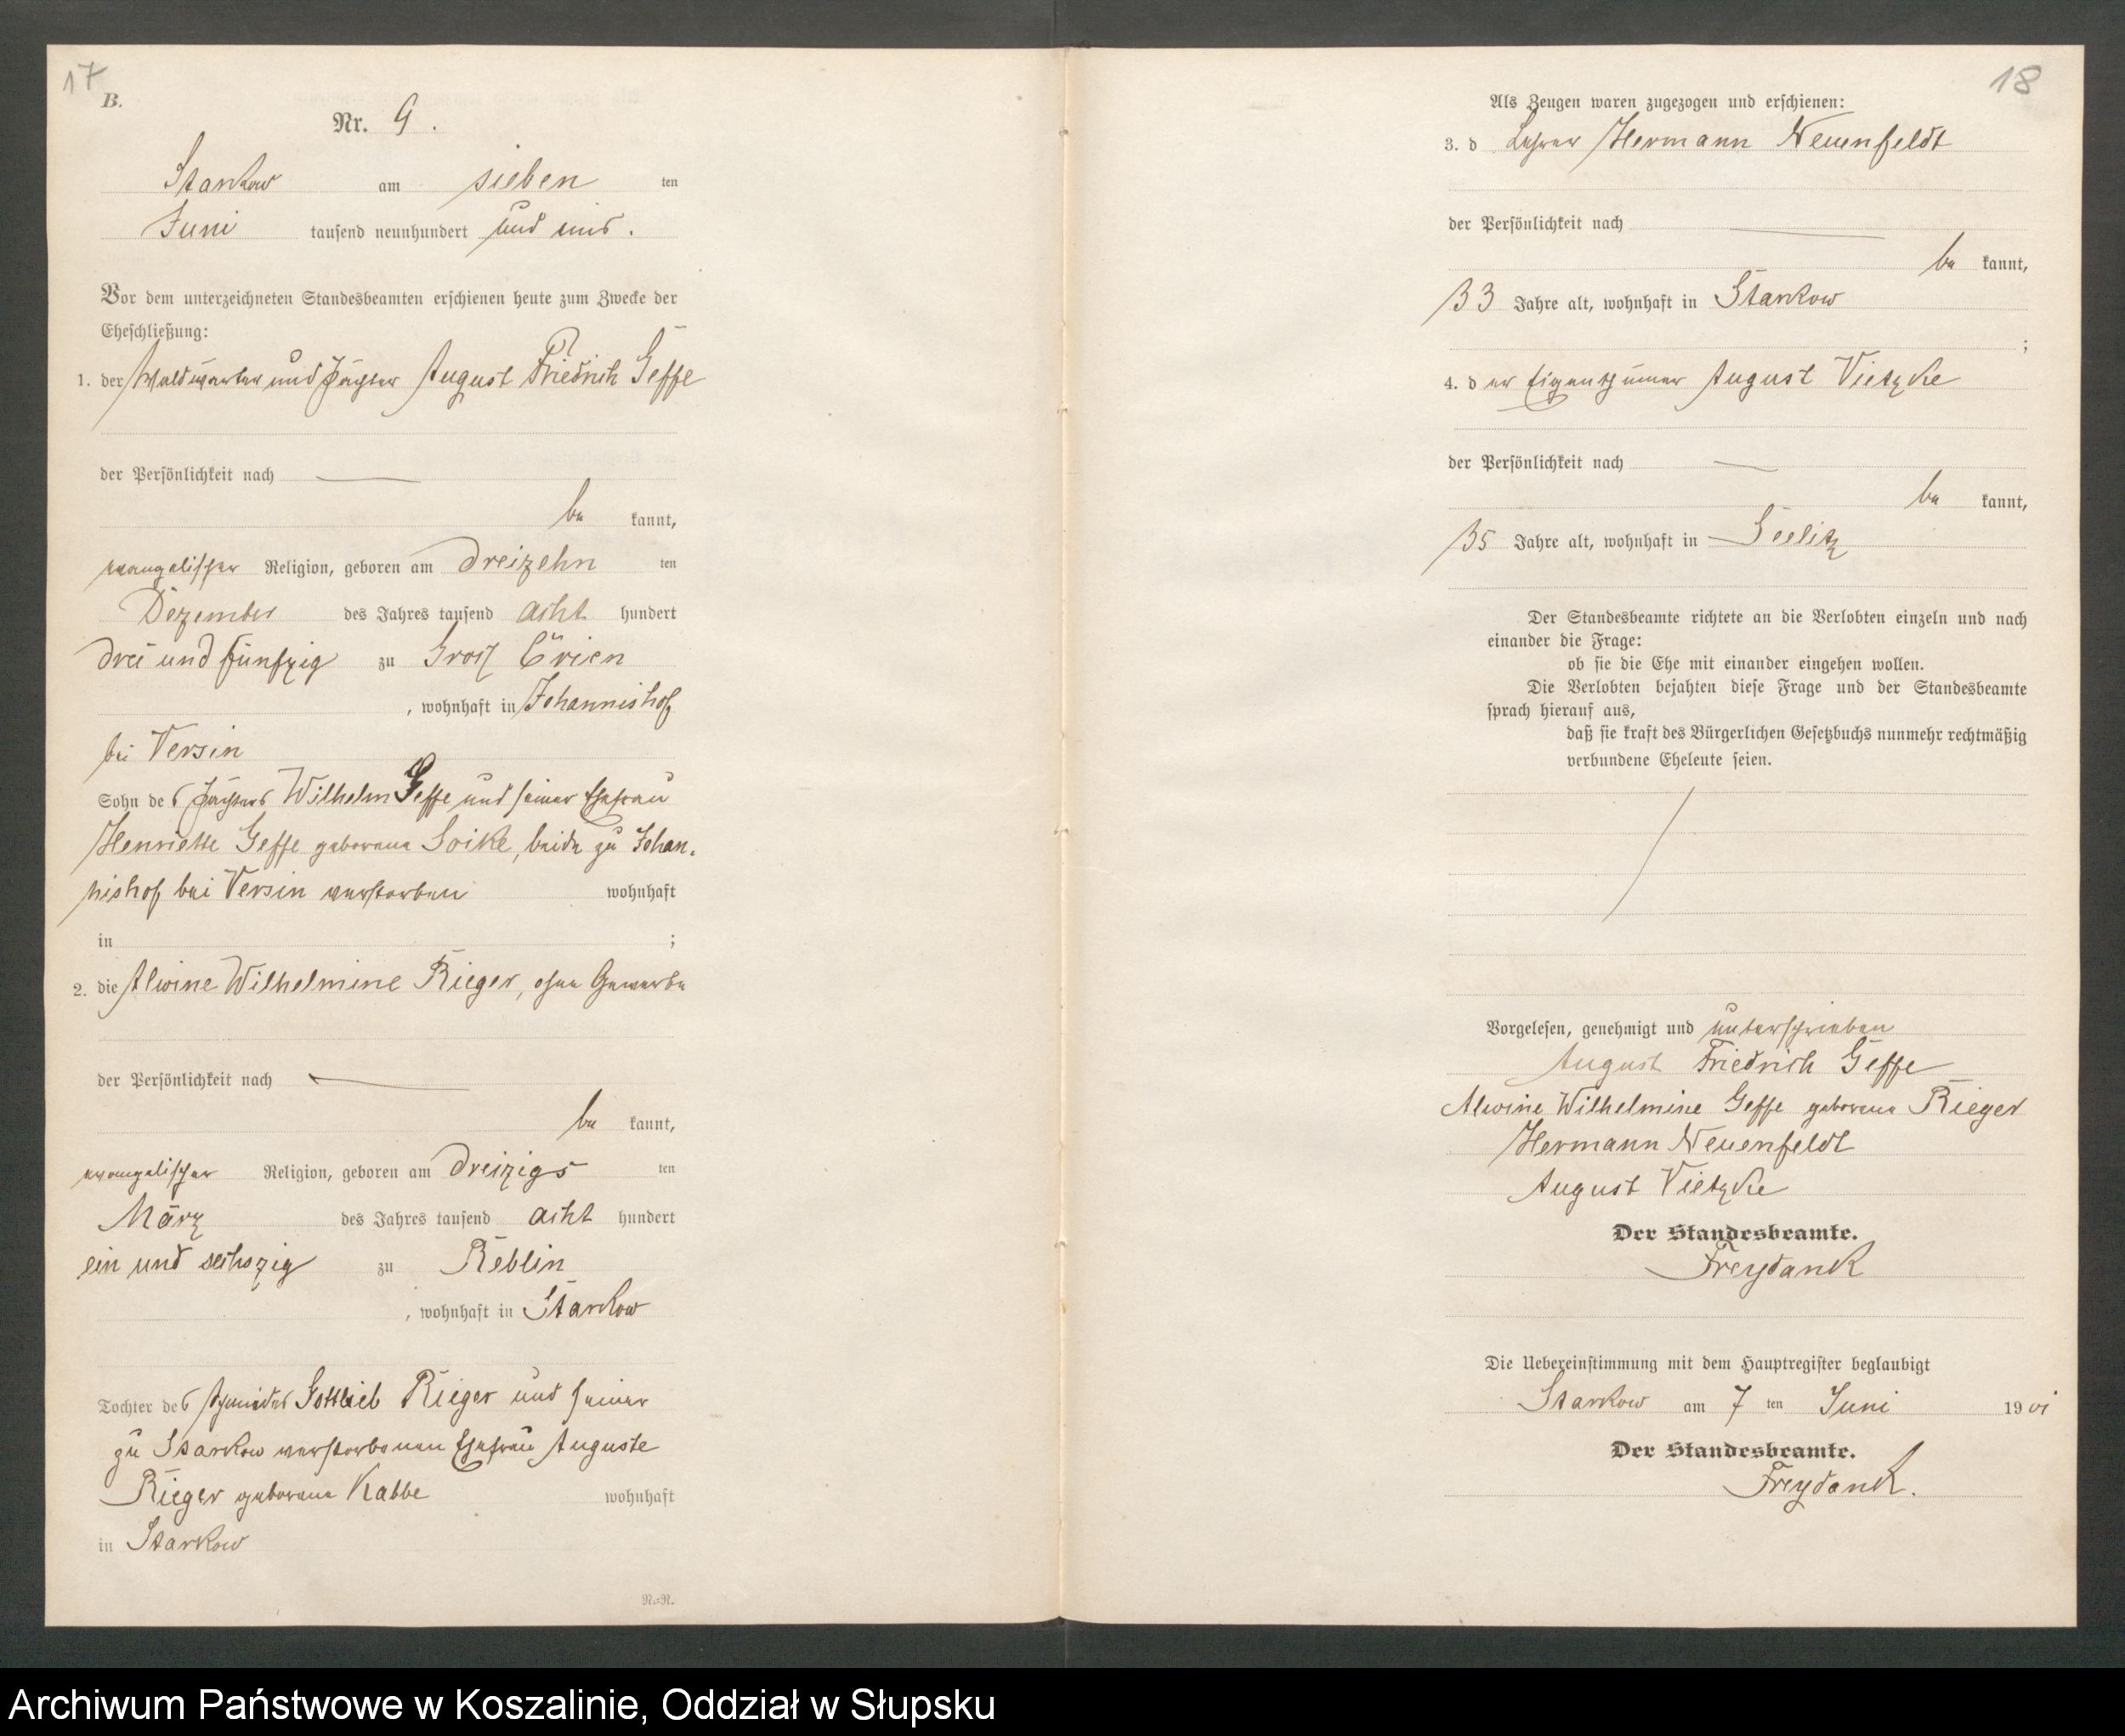 17
B.
Nr. 9.
Starkow am sieben ten
Juni tausend neunhundert und eins.
Vor dem unterzeichneten Standesbeamten erschienen heute zum Zwecke der
Eheschließung:
1. der Waldwärter und Pächter August Friedrich Geffe
der Persönlichkeit nach
be kannt,
evangelischer Religion, geboren am dreizehn ten
Dezember des Jahres tausend acht hundert
drei und fünfzig zu Groß Crien
, wohnhaft in Johannishof
bei Versin
Sohn des Pächters Wilhelm Geffe und seiner Ehefrau
Henriette Geffe geborene Soike, beide zu Johan-
nishof bei Versin verstorben wohnhaft
in ;
2. die Alwine Wilhelmine Rieger, ohne Gewerbe
der Persönlichkeit nach
be kannt,
evangelischer Religion, geboren am dreizigs ten
März des Jahres tausend acht hundert
ein und sechszig zu Reblin
, wohnhaft in Starkow
Tochter des Schmiedes Gottlieb Rieger und seiner
zu Starkow verstorbenen Ehefrau Auguste
Rieger geborene Kabbe wohnhaft
in Starkow
N.=N.
18
Als Zeugen waren zugezogen und erschienen:
3. d Lehrer Hermann Neuenfeldt
der Persönlichkeit nach
be kannt,
33 Jahre alt, wohnhaft in Starkow
;
4. d er Eigenthümer August Vietzke
der Persönlichkeit nach
be kannt,
35 Jahre alt, wohnhaft in Seelitz
Der Standesbeamte richtete an die Verlobten einzeln und nach
einander die Frage:
ob sie die Ehe mit einander eingehen wollen.
Die Verlobten bejahten diese Frage und der Standesbeamte
sprach hierauf aus,
daß sie kraft des Bürgerlichen Gesetzbuchs nunmehr rechtmäßig
verbundene Eheleute seien.
Vorgelesen, genehmigt und unterschrieben
August Friedrich Geffe
Alwine Wilhelmine Geffe geborene Rieger
Hermann Neuenfeldt
August Vietzke
Der Standesbeamte.
Freydank
Die Uebereinstimmung mit dem Hauptregister beglaubigt
Starkow am 7 ten Juni 19 01
Der Standesbeamte.
Freydank.
Archiwum Państwowe w Koszalinie, Oddział w Słupsku